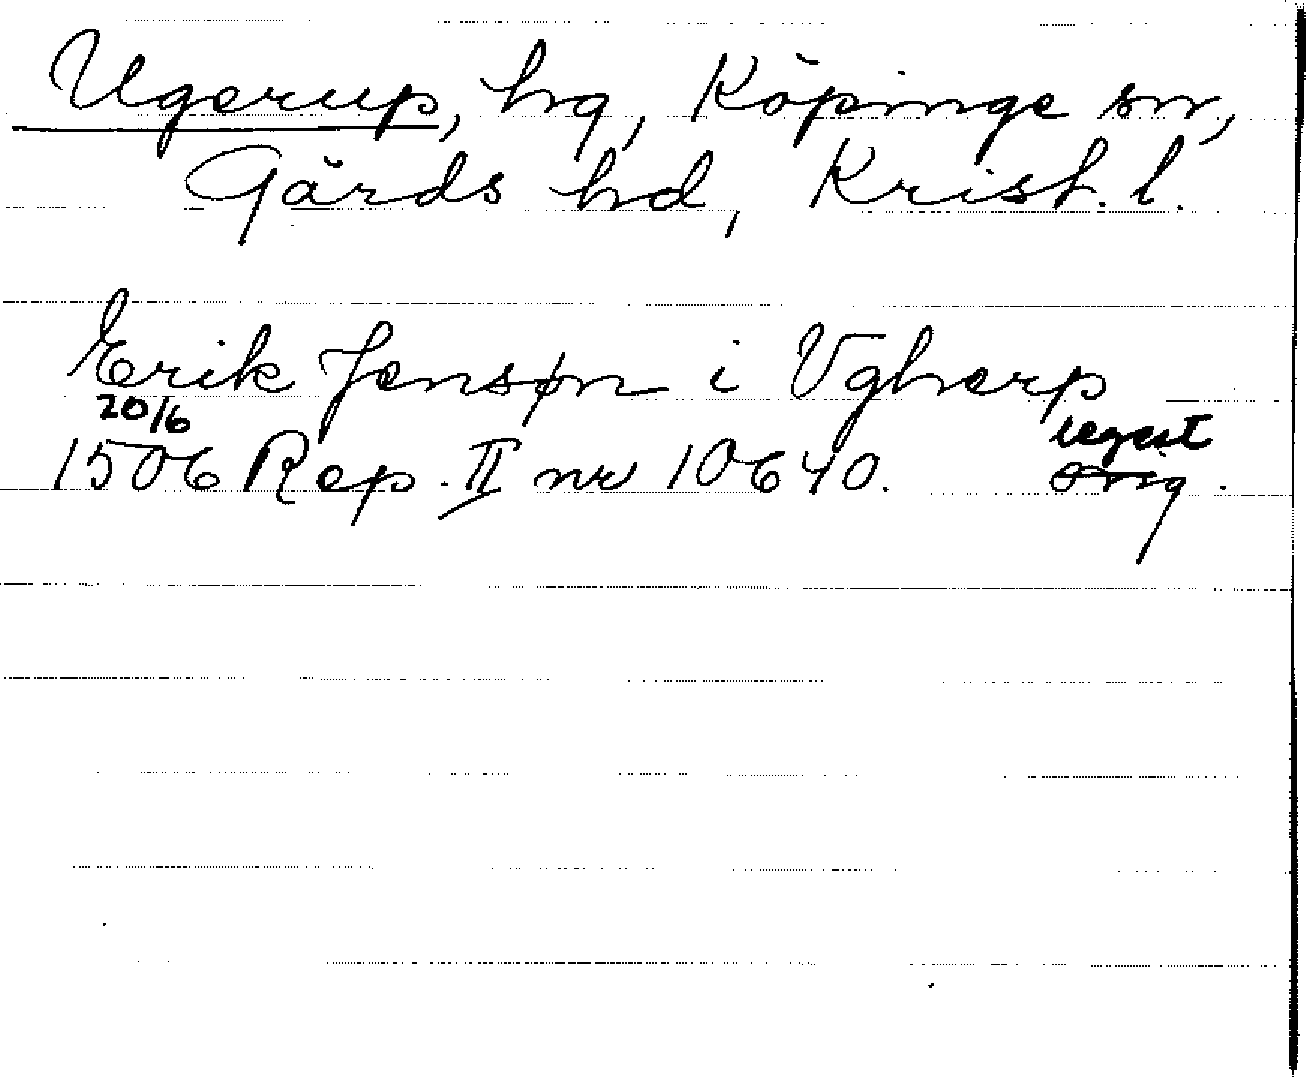 Ugerup, hg, Köpinge sn,
Gärds hd, Krist. l.
Erik Jensøn i Vgherp
20/6 regest
1506 Rep. II nr 10640. Orig.